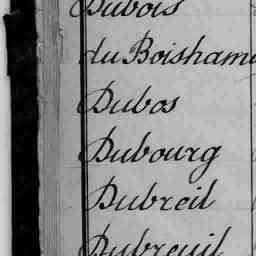 Dubois
du Boisham
Dubos
Dubourg
Dubreil
Dubreuil